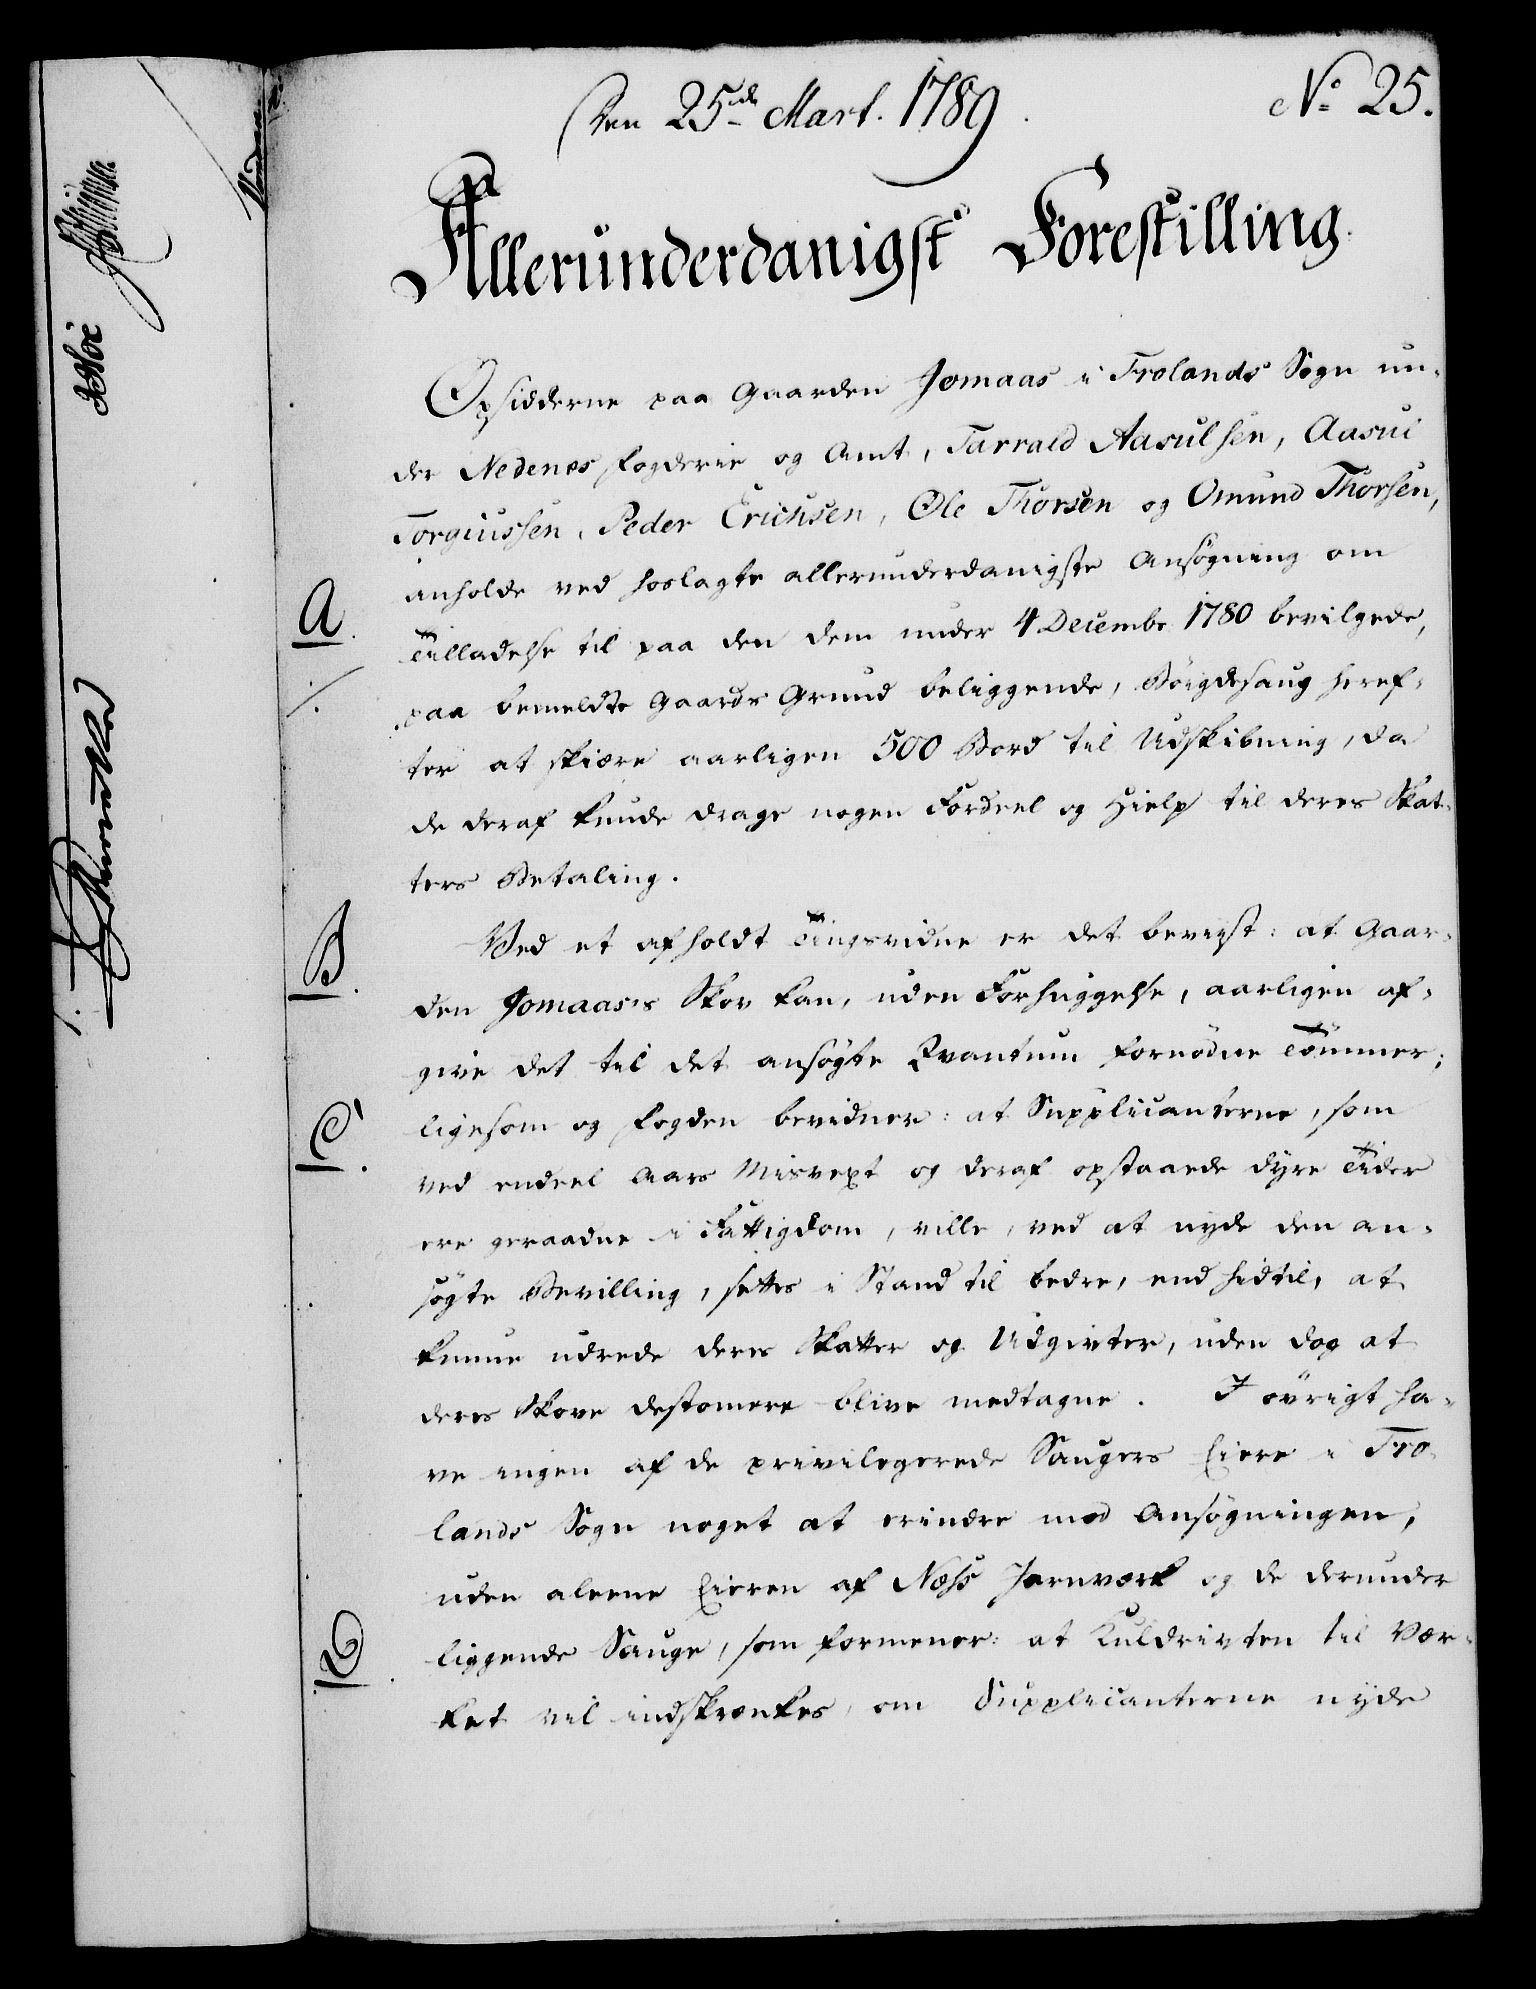 Den 25de Mart. 1789.
No 25.
Allerunderdanigst Forestilling.
Opsidderne paa Gaarden Jomaas i Frolands Sogn un-
der Nedenes Fogderie og Amt, Tarrald Aasulsen, Aasul
Torgiussen, Peder Erichsen, Ole Thorsen og Omund Thorsen,
A.
anholde ved hoslagte allerunderdanigste Ansøgning om
Tilladelse til paa den dem under 4 Decembr 1780 bevilgede,
paa bemeldte Gaards Grund beliggende, Bøigdesaug heref-
ter at skiære aarligen 500 Bord til Udskibning, da
de deraf kunde drage nogen Fordeel og Hielp til deres Skat-
ters Betaling.
B.
Ved et afholdt Tingsvidne er det beviist: at Gaar-
den Jomaas's Skov kan, uden Forhuggelse, aarligen af-
give det til det ansøgte Qvantum fornødne Tømmer;
C.
ligesom og Fogden bevidner: at Supplicanterne, som
ved endeel Aars Misvext og deraf opstaaede dyre Tider
ere geraadne i Fattigdom, ville, ved at nyde den an-
søgte Bevilling, settes i Stand til bedre, end hidtil, at
kunne udrede deres Skatter og Udgivter, uden dog at
deres Skove destomere blive medtagne. I øvrigt ha-
ve ingen af de privilegerede Saugers Eiere i Fro-
lands Sogn noget at erindre mod Ansøgningen,
uden aleene Eieren af Næss Jernværk og de derunder
liggende Sauge, som formener: at Kuldrivten til Vær-
ket vil indskrænkes, om Supplicanterne nyde